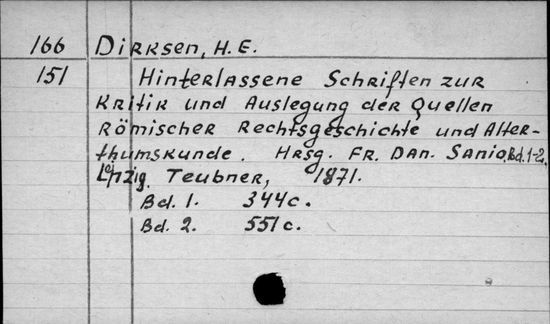 166 Dirksen, H. E.
151 Hinterlassene Schriften zur
Kritik und Auslegung der Quellen
Römischer Rechtsgeschichte und Alter-
thumskunde. Hrsg. Fr. Dan. Sanio. Bd. 1-2.
Leipzig. Teubner, 1871.
Bd. 1. 344c.
Bd. 2. 551c.